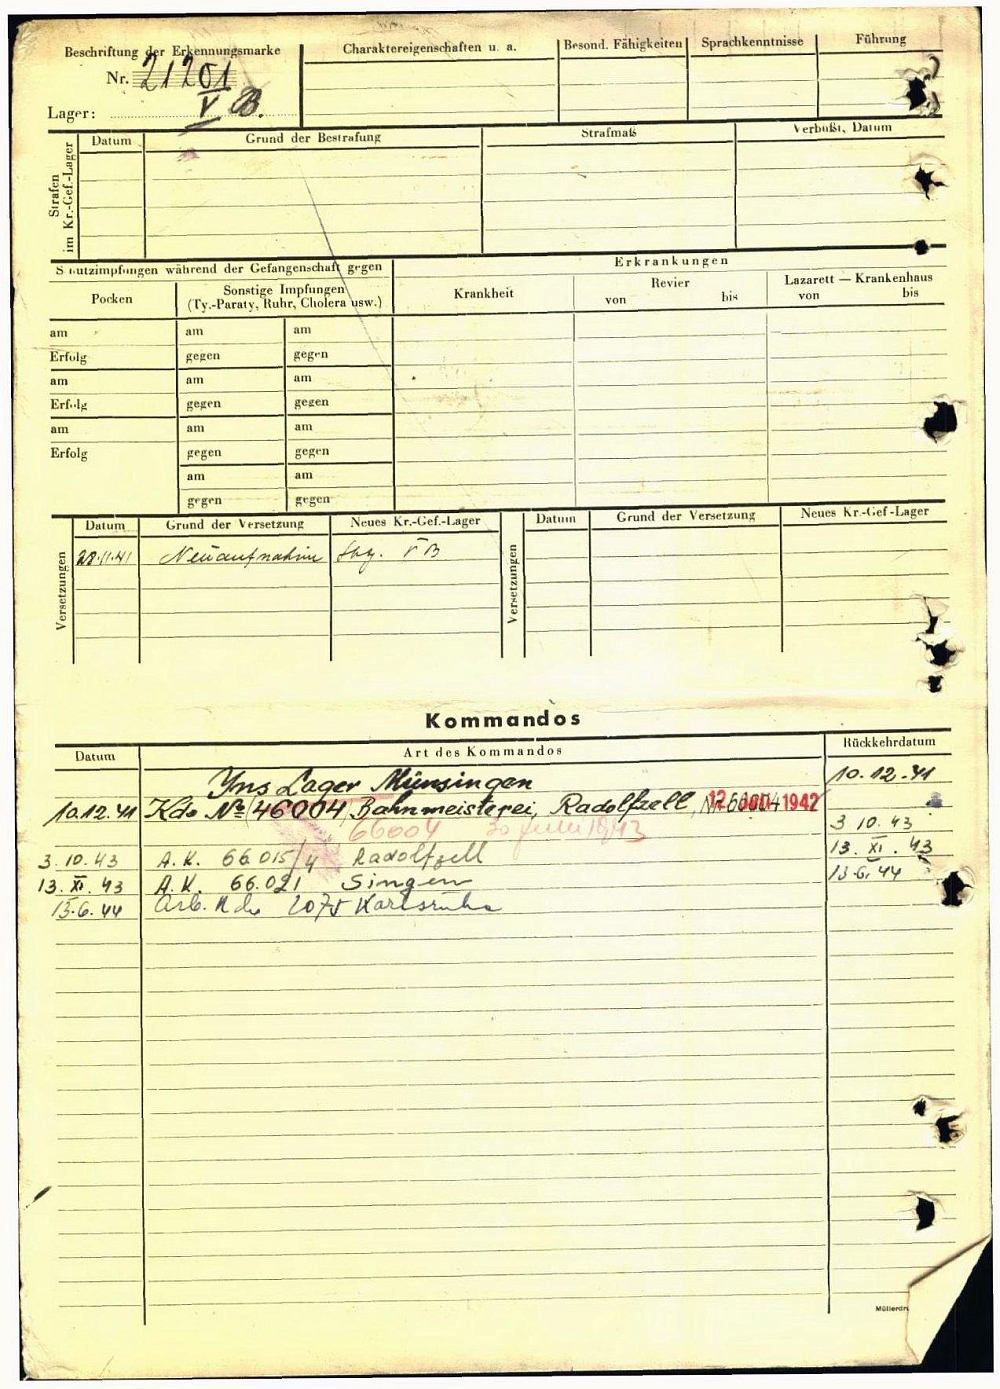 Beschriftung der Erkennungsmarke
Nr. 21201
V B.
Lager:
Charaktereigenschaften u. a.
Besond. Fähigkeiten
Sprachkenntnisse
Führung
Strafen im Kr.-Gef.-Lager
Datum
Grund der Bestrafung
Strafmaß
Verbüßt, Datum
S utzimpfungen während der Gefangenschaft gegen
Erkrankungen
Pocken
Sonstige Impfungen
(Ty.-Paraty, Ruhr, Cholera usw.)
Krankheit
Revier
von bis
Lazarett — Krankenhaus
von bis
am am am
Erfolg gegen gegen
am am am
Erfolg gegen gegen
am am am
Erfolg gegen gegen
am am
gegen gegen
Versetzungen
Datum Grund der Versetzung Neues Kr.-Gef.-Lager
28.11.41 Neuaufnahme V B
Versetzungen
Datum Grund der Versetzung Neues Kr.-Gef-Lager
Kommandos
Datum Art des Kommandos Rückkehrdatum
Yns Lager Münsingen 10.12.41
10.12.41 Kdo Nº 46004 Bahnmeisterei, Radolfzell, 12. 1942
66004 30 Juni 1943 3 10. 43
3. 10. 43 A. K. 66 015/4 Radolfzell 13. XI. 43
13. XI. 43 A. K. 66.021 Singen 13.6. 44
13.6. 44 Arb. Kdo 2075 Karlsruhe
Müllerdr